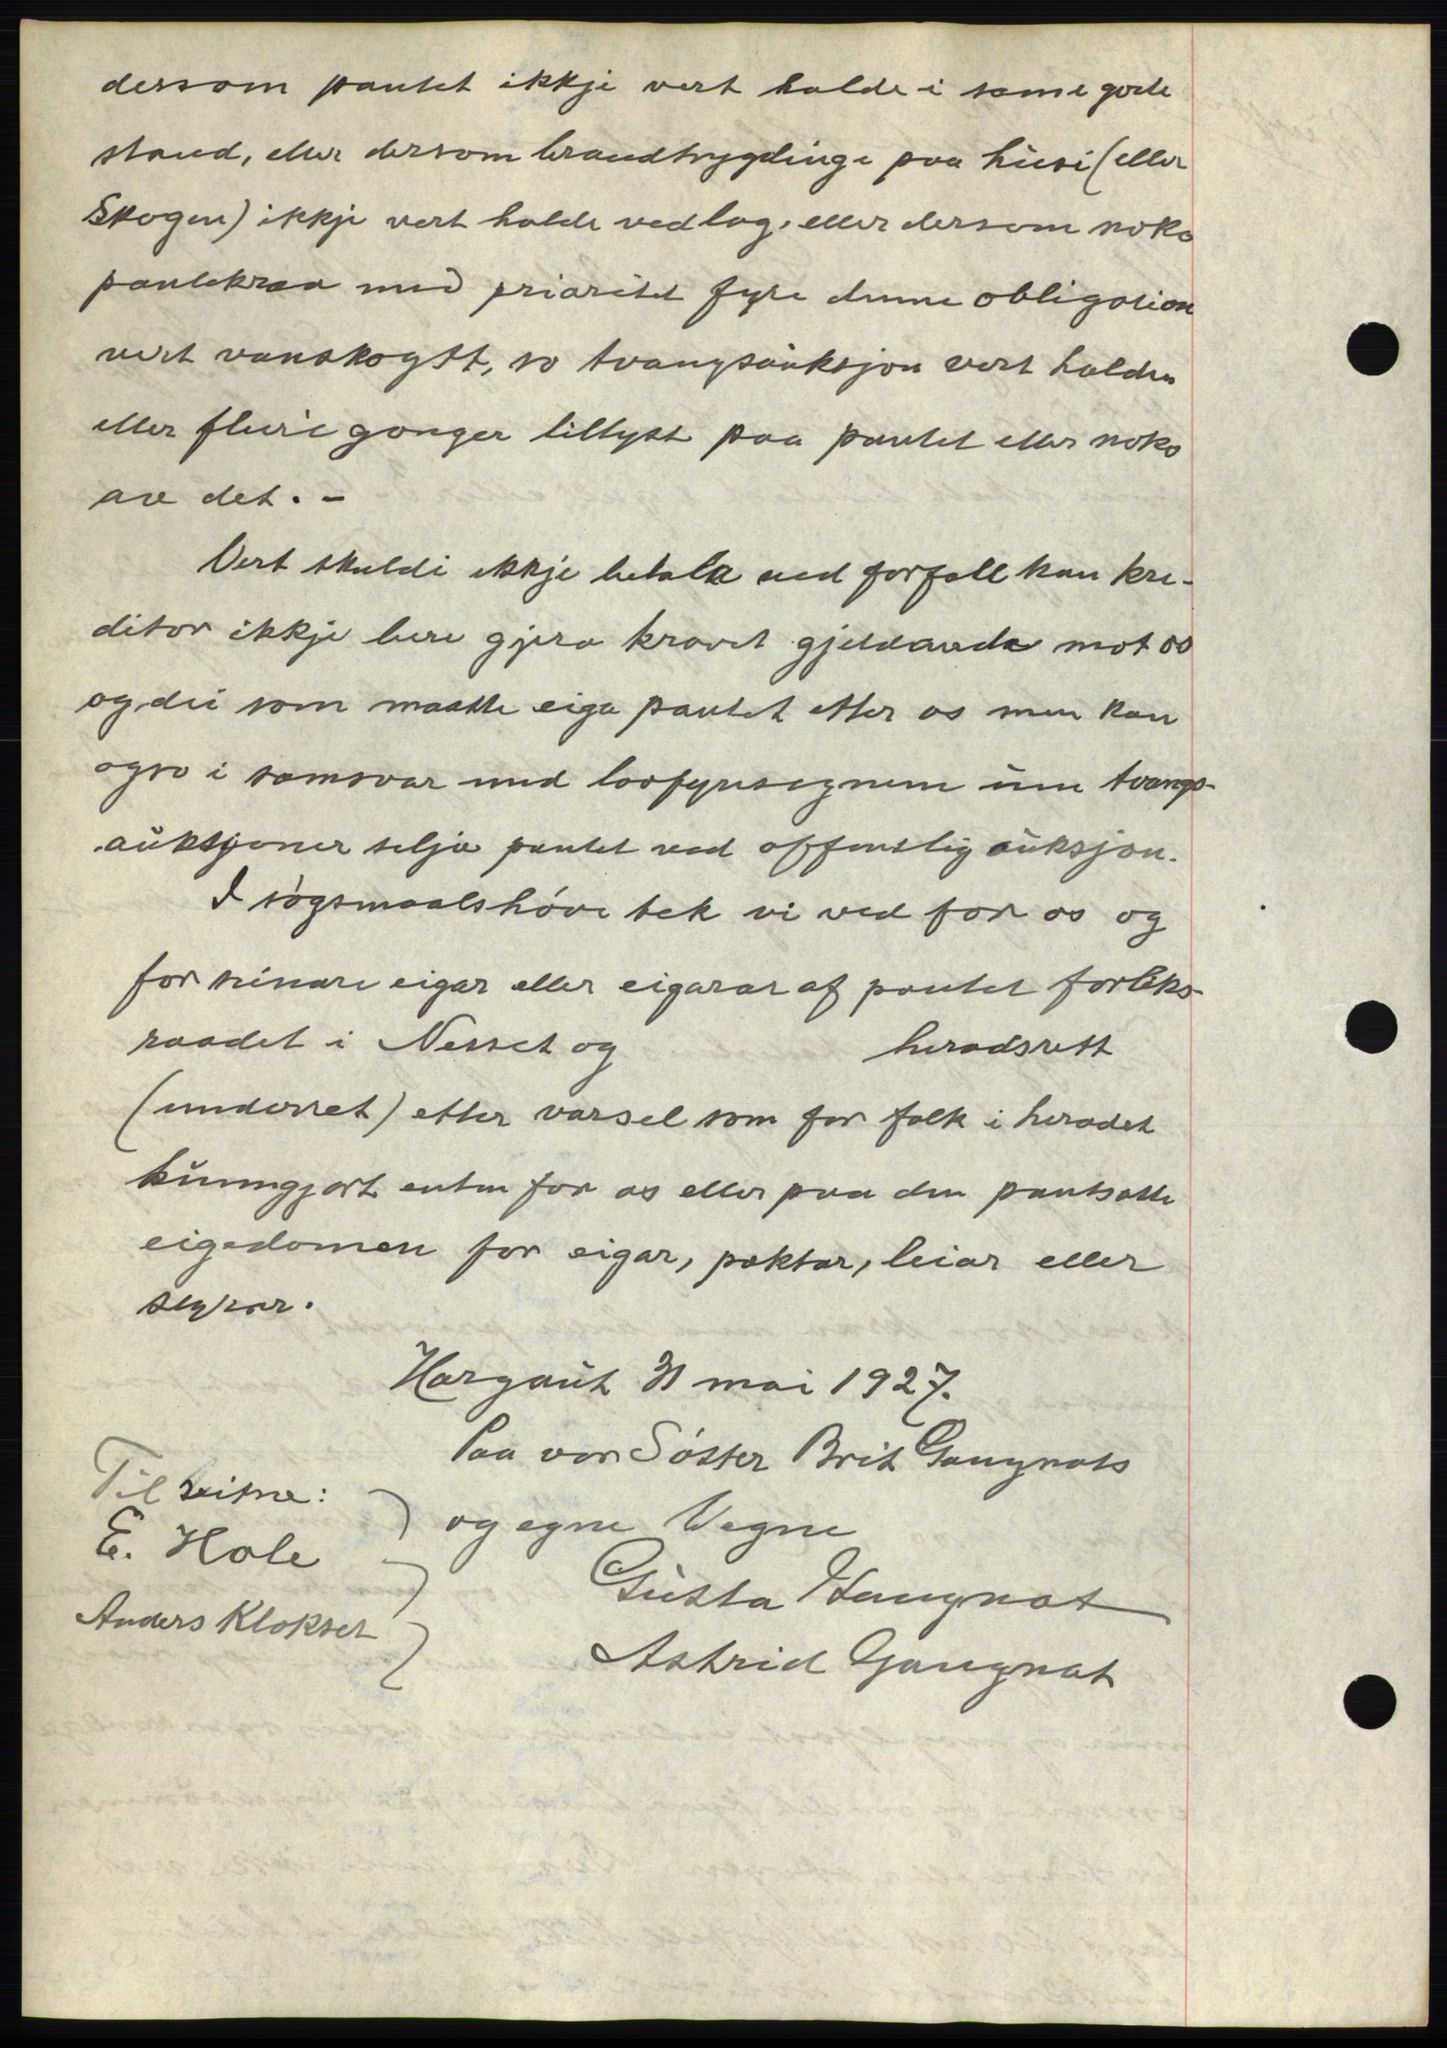 dersom pantet ikkje vert halde i same gode
stand, eller dersom brandtrygdinge paa husi (eller
Skogen) ikkje vert halde vedlag, eller dersom noko
pantekrav med prioritet fyre denne obligation
vert vanskøytt, so tvangsauksjon vert halden
eller fleire gonger tillyst paa pantet eller noko
av det. -
Vert skuldi ikkje betala ved forfall kan kre-
ditor ikkje bere gjera kravet gjeldande mot os
og dei som maatte eiga pantet etter os men kan
ogso i samsvar med lovfyresegnene um tvangs-
auksjoner selja pantet ved offentlig auksjon.
I søgsmaalshøve tek vi ved for os og
for seinare eigar eller eigarar af pantet forliks-
raadet i Nesset og heradsrett
(underret) etter varsel som for folk i heradet
kunngjort enten for os eller paa den pantsatte
eigedomen for eigar, paktar, leiar eller
styrar.
Hargaut 31 mai 1927.
Paa vor Søster Brit Gangnats
og egne Vegne
Gusta Haugnat
Astrid Gaugnat
Til vitne:
E. Hole
Anders Klokset